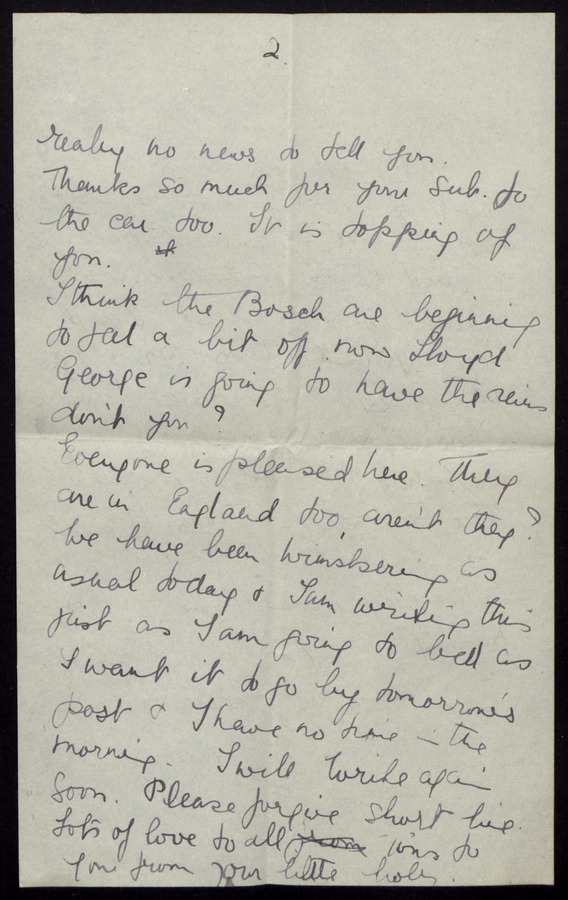 2.
really no news to tell you.
Thanks so much for your Sub. to
the car too. It is topping of
you.
I think the Bosch are beginning
to feel a bit off now Lloyd
George is going to have the reins
don't you?
Everyone is pleased here. They
are in England too, aren't they?
We have been as
usual today & I am writing this
just as I am going to bed as
I want it to go by tomorrow's
post & I have no time in the
morning. I will write again
soon. Please forgive short line.
Lots of love to all to
you from your little